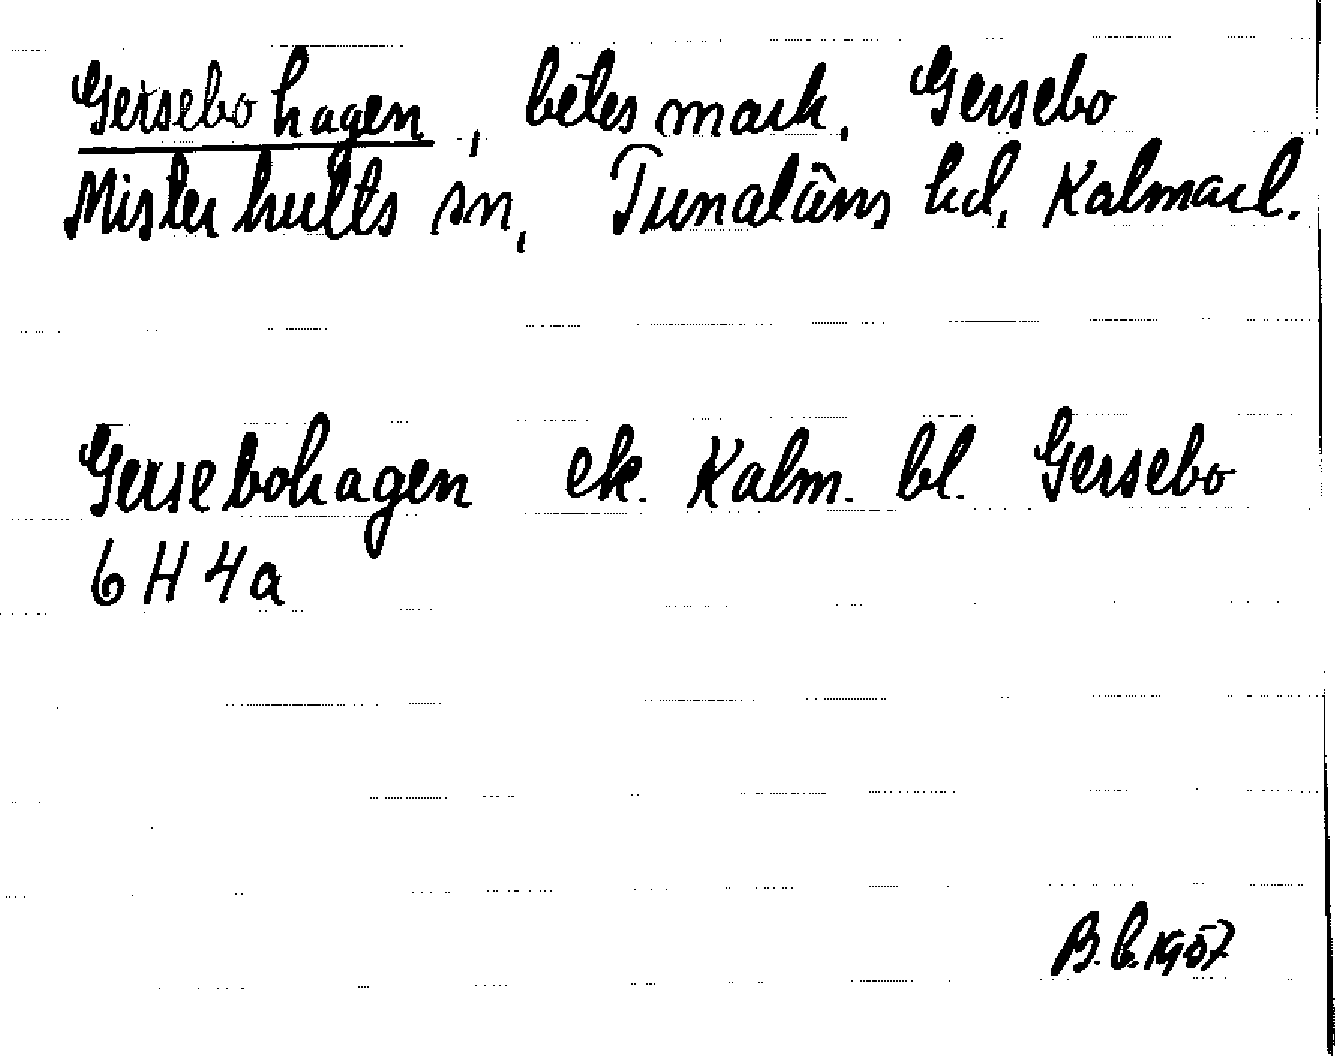 Gersebohagen, betesmark, Gersebo
Misterhults sn, Tunaläns hd, Kalmarl.
Gersebohagen ek. Kalm. bl. Gersebo
6 H 4a
1957